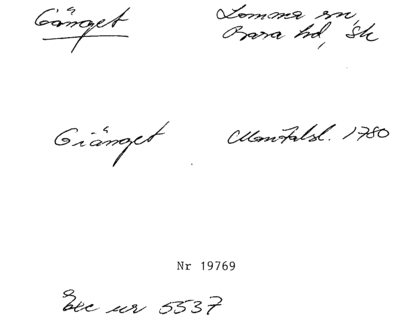 Gånget Lomma sn,
Bara hd, Sk
Giånget Mantalsl. 1780
Nr 19769
Exc ur 5537